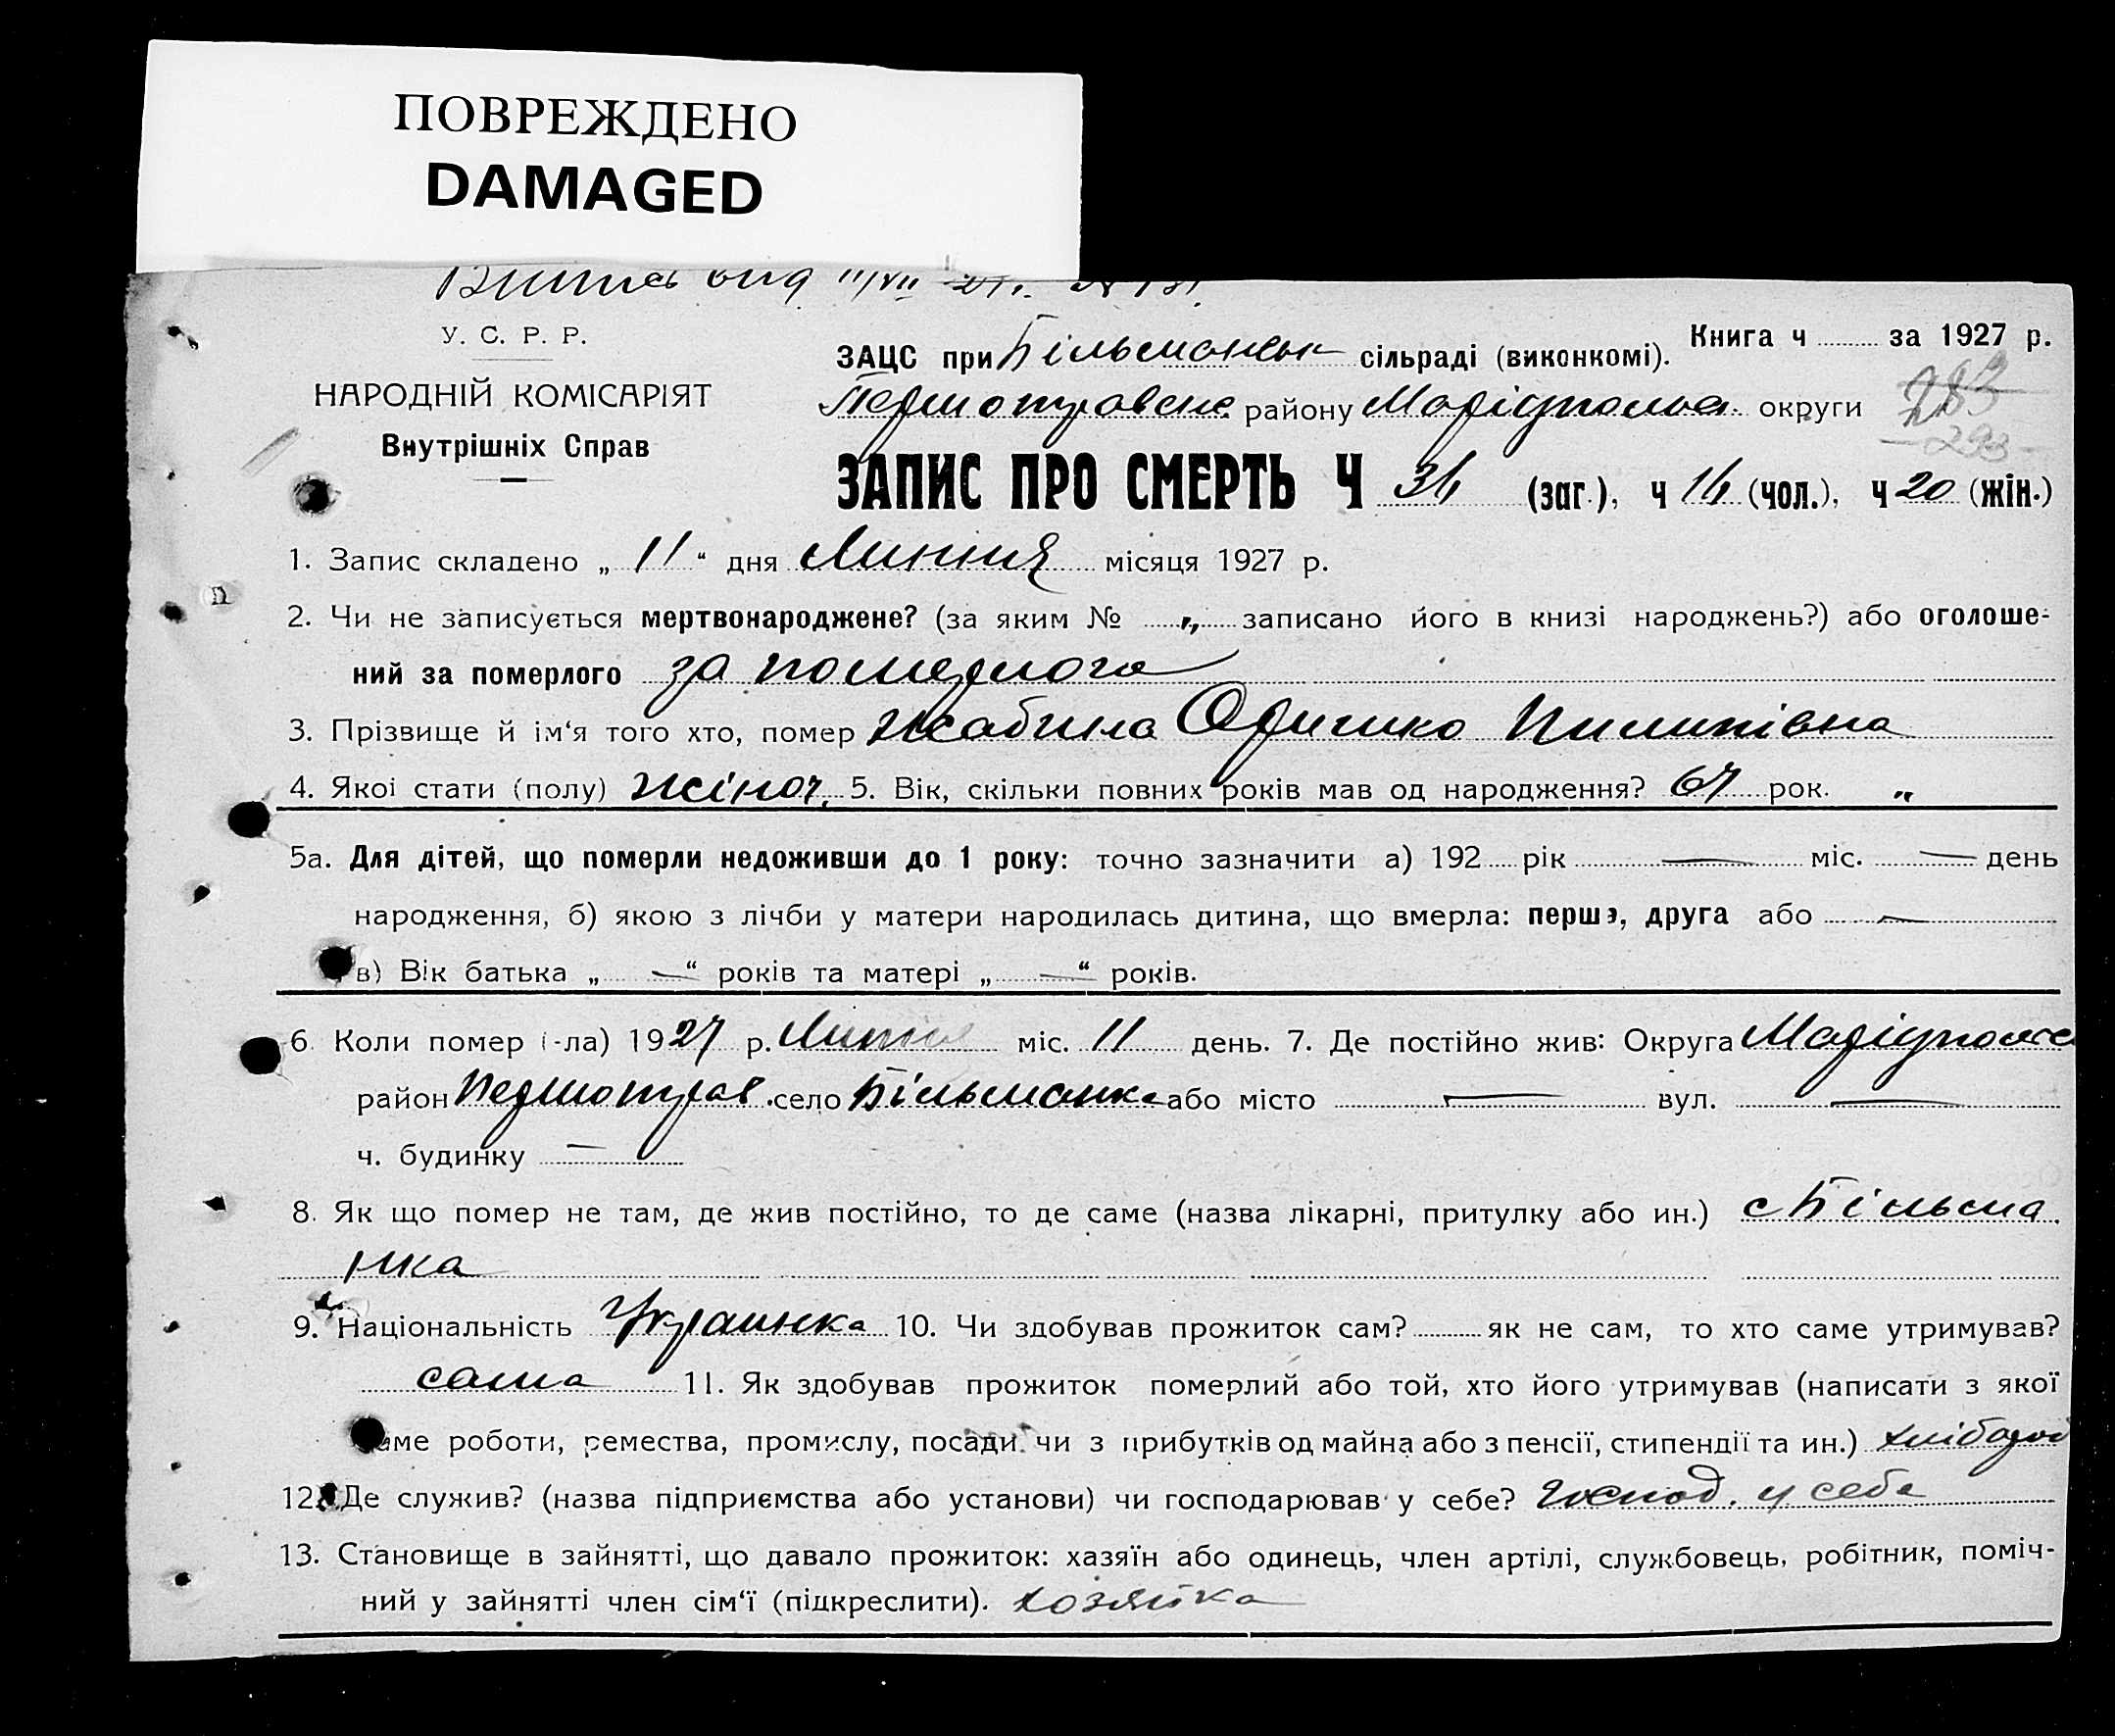 ПОВРЕЖДЕНО
DAMAGED
У. С. Р. Р.
НАРОДНІЙ КОМІСАРІЯТ
Внутрішніх Справ
Книга ч за 1927 р.
ЗАЦС при Більманськ сільраді (виконкомі).
Першотравенс. району Маріюпольс. округи
283
293
ЗАПИС ПРО СМЕРТЬ Ч 36 (заг.), ч 16 (чол.), ч 20 (жін.)
1. Запис складено „ 11 “ дня Липня місяця 1927 р.
2. Чи не записується мертвонароджене? (за яким № „ записано його в книзі народжень?) або оголоше-
ний за померлого за померлого
3. Прізвище й ім‘я того хто, помер Жабина Оришко Пилипівна
4. Якої стати (полу) жіноч. 5. Вік, скільки повних років мав од народження? 67 рок. „
5а. Для дітей, що померли недоживши до 1 року: точно зазначити а) 192 рік — міс. — день
народження, б) якою з лічби у матери народилась дитина, що вмерла: перша, друга або —
в) Вік батька „ — “ років та матері „ — “ років.
6. Коли помер (-ла) 1927 р. Липня міс. 11 день. 7. Де постійно жив: Округа Маріюпольс
район Першотрав. село Більманка або місто — вул. —
ч. будинку —
8. Як що помер не там, де жив постійно, то де саме (назва лікарні, притулку або ин.) с Більма
нка
9. Національність Украинка 10. Чи здобував прожиток сам? як не сам, то хто саме утримував?
сама 11. Як здобував прожиток померлий або той, хто його утримував (написати з якої
саме роботи, ремества, промислу, посади чи з прибутків од майна або з пенсії, стипендії та ин.) хлібороб
12. Де служив? (назва підприємства або установи) чи господарював у себе? Господ. у себе
13. Становище в зайнятті, що давало прожиток: хазяїн або одинець, член артілі, службовець, робітник, поміч-
ний у зайнятті член сім‘ї (підкреслити). хозяйка